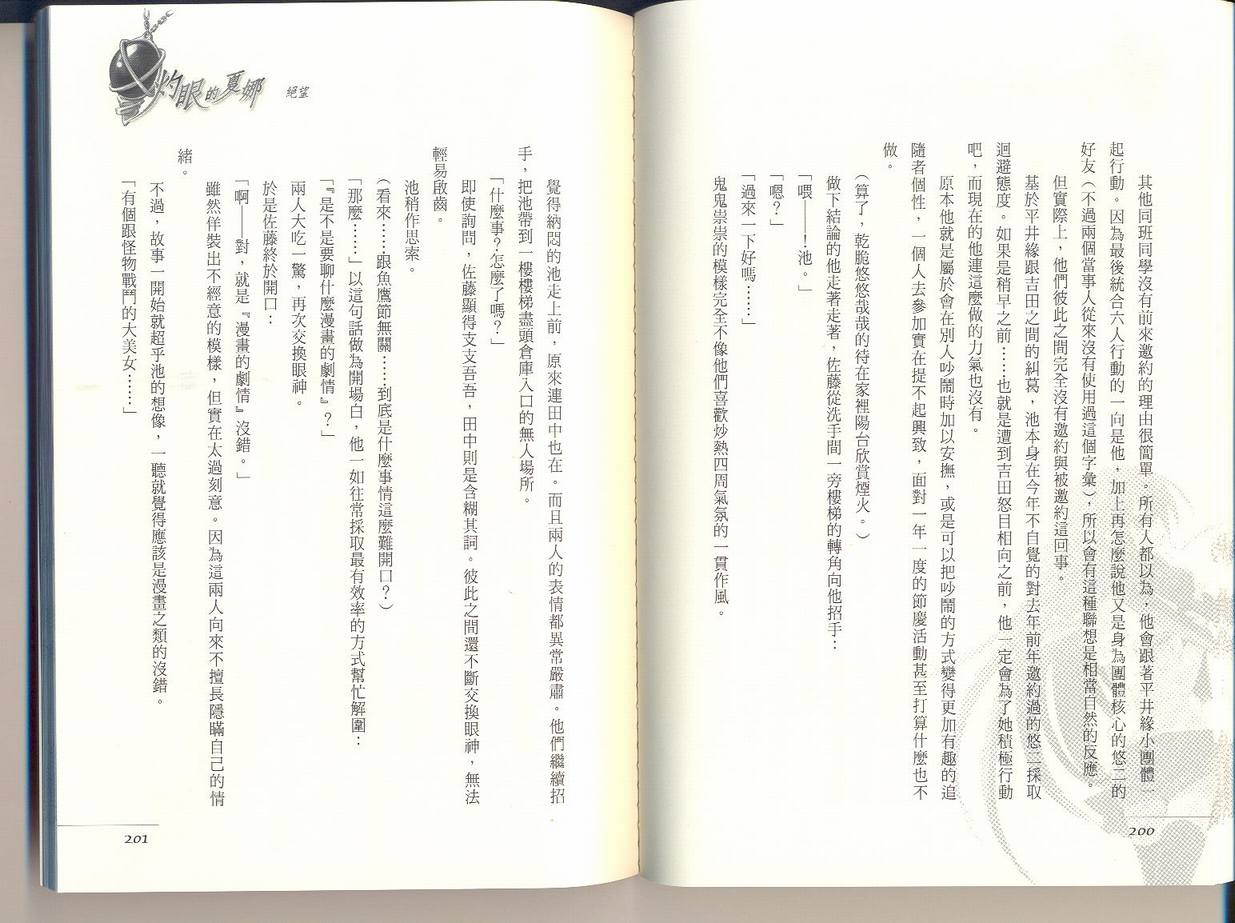 其他同班同學沒有前來邀約的理由很簡單。所有人都以為，他會跟著平井緣小團體一
起行動。因為最後統合六人行動的一向是他，加上再怎麼說他又是身為團體核心的悠二的
好友（不過兩個當事人從來沒有使用過這個字彙），所以會有這種聯想是相當自然的反應。
但實際上，他們彼此之間完全沒有邀約與被邀約這回事。
基於平井緣跟吉田之間的糾葛，池本身在今年不自覺的對去年前年邀約過的悠二採取
迴避態度。如果是稍早之前……也就是遭到吉田怒目相向之前，他一定會為了她積極行動
吧，而現在的他連這麼做的力氣也沒有。
原本他就是屬於會在別人吵鬧時加以安撫，或是可以把吵鬧的方式變得更加有趣的追
隨者個性，一個人去參加實在提不起興致，面對一年一度的節慶活動甚至打算什麼也不
做。
（算了，乾脆悠悠哉哉的待在家裡陽台欣賞煙火。）
做下結論的他走著走著，佐藤從洗手間一旁樓梯的轉角向他招手：
「喂——！池。」
「嗯？」
「過來一下好嗎……」
鬼鬼祟祟的模樣完全不像他們喜歡炒熱四周氣氛的一貫作風。
200
灼眼的夏娜 絕望
覺得納悶的池走上前，原來連田中也在。而且兩人的表情都異常嚴肅。他們繼續招
手，把池帶到一樓樓梯盡頭倉庫入口的無人場所。
「什麼事？怎麼了嗎？」
即使詢問，佐藤顯得支支吾吾，田中則是含糊其詞。彼此之間還不斷交換眼神，無法
輕易啟齒。
池稍作思索。
（看來……跟魚鷹節無關……到底是什麼事情這麼難開口？）
「那麼……」以這句話做為開場白，他一如往常採取最有效率的方式幫忙解圍：
「『是不是要聊什麼漫畫的劇情』？」
兩人大吃一驚，再次交換眼神。
於是佐藤終於開口：
「啊——對，就是『漫畫的劇情』沒錯。」
雖然佯裝出不經意的模樣，但實在太過刻意。因為這兩人向來不擅長隱瞞自己的情
緒。
不過，故事一開始就超乎池的想像，一聽就覺得應該是漫畫之類的沒錯。
「有個跟怪物戰鬥的大美女……」
201